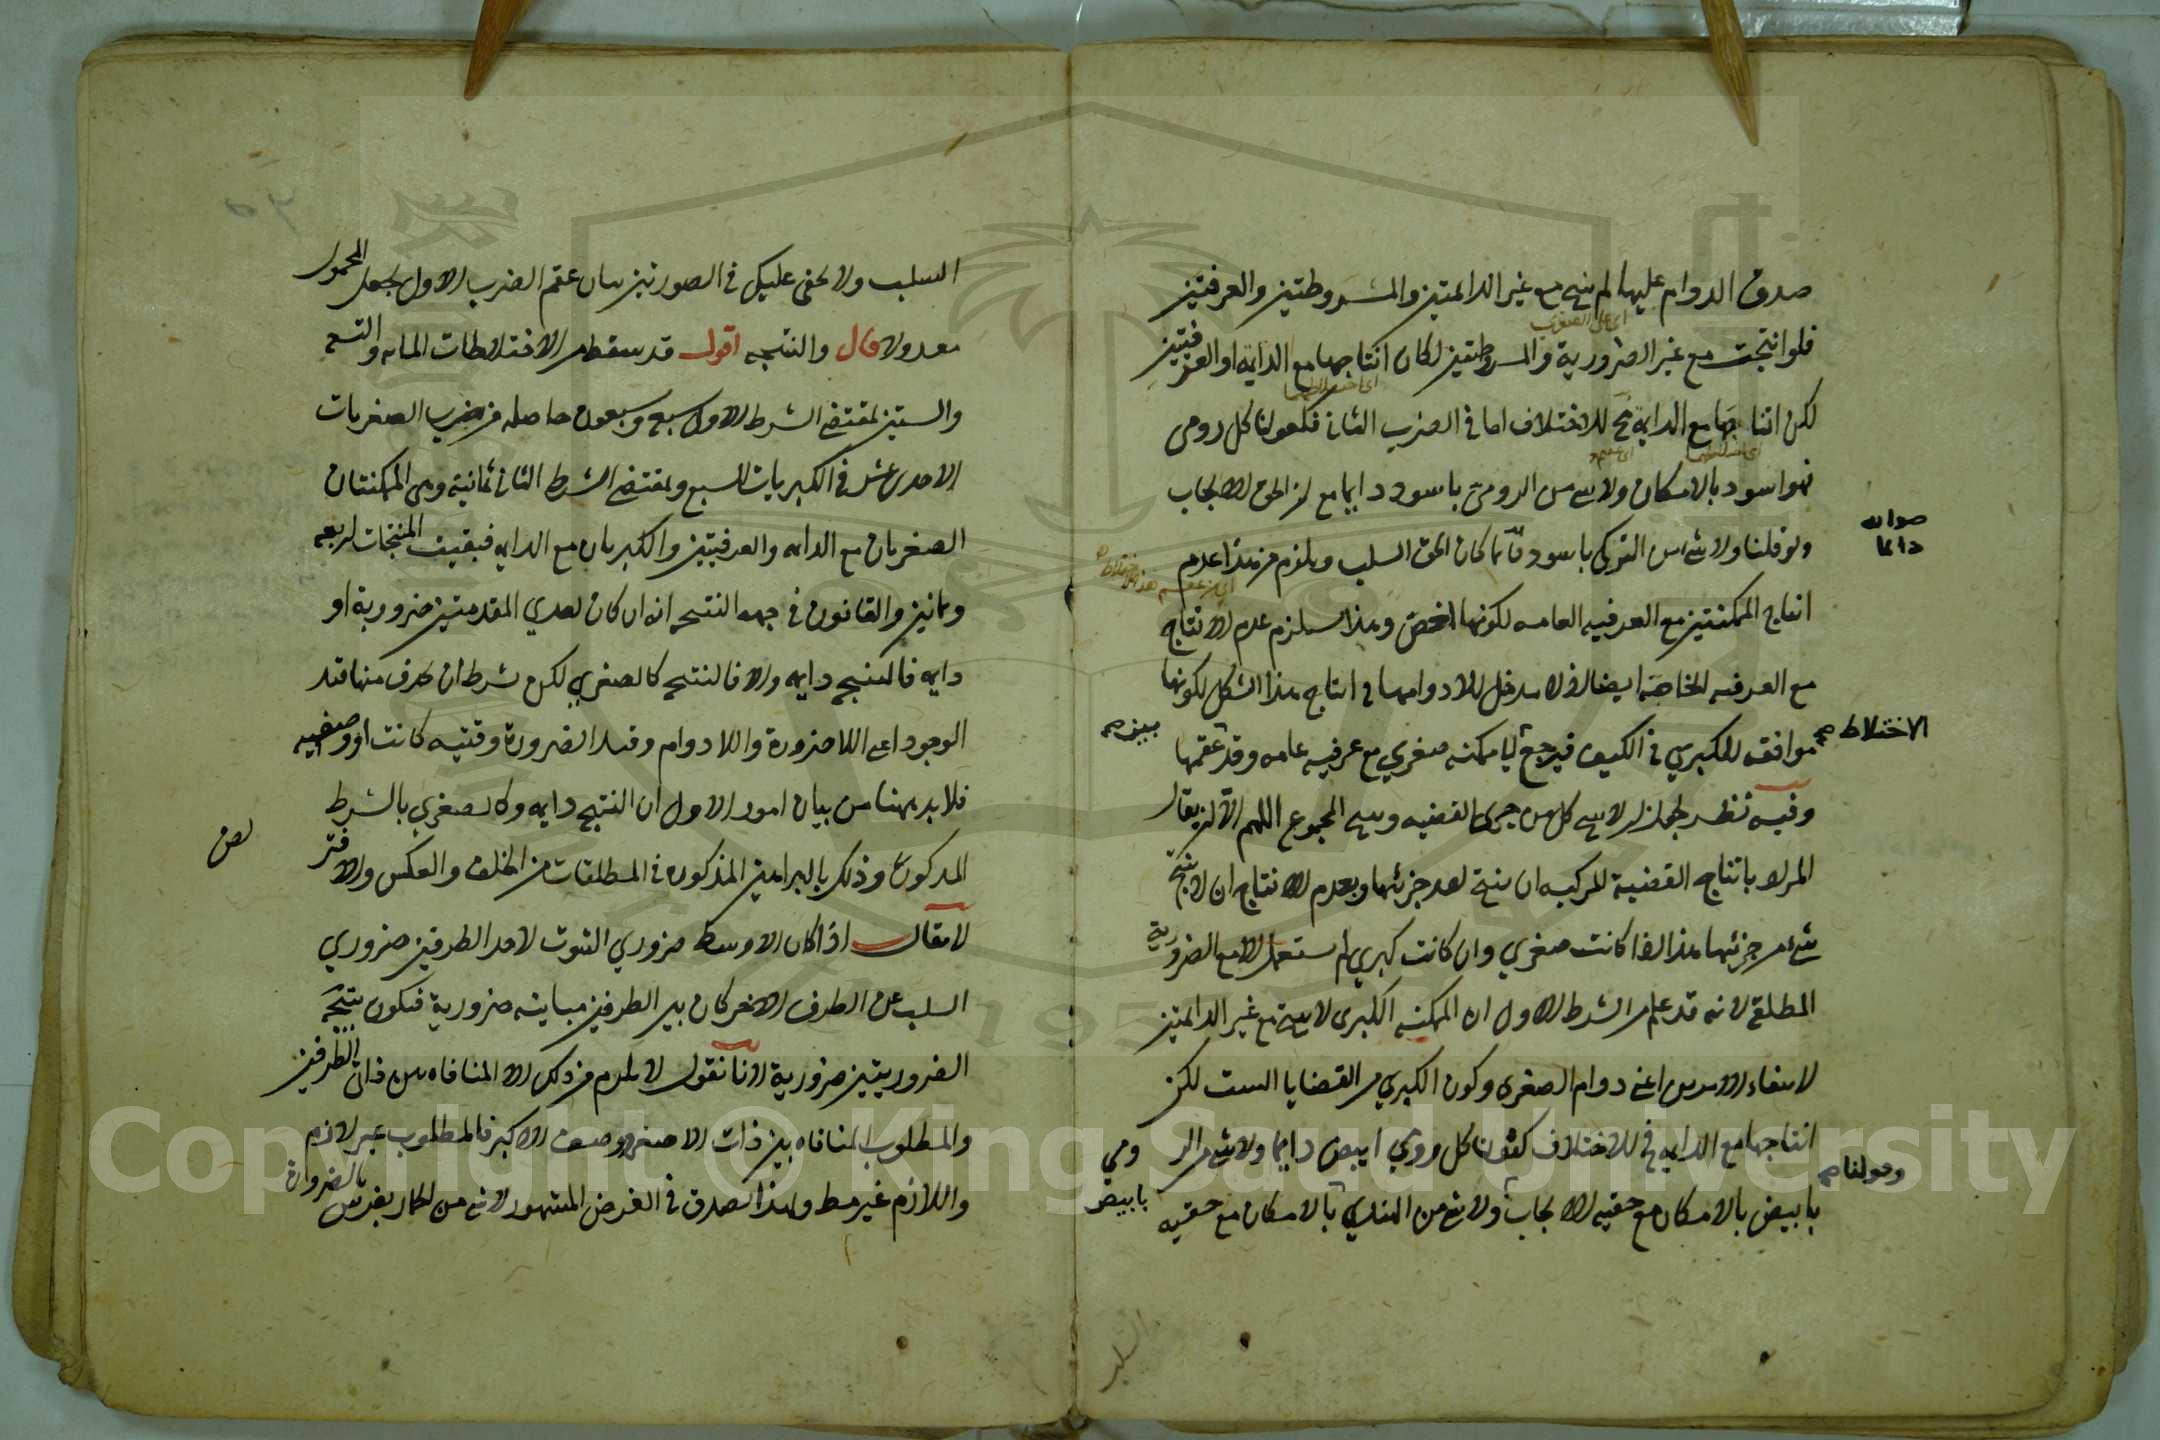 صدق الدوام عليها لم ينتج مع غير الدائمتين والمشروطتين والعرفتين
اى على الصغرى
فلو انتجت مع غير الضرورية والمشروطتين لكان انتاجها مع الدايمة او العرفتين
اى اختلاطها
لكن انتاجها مع الدايمة مح للاختلاف اما فى الضرب الثانى فكقولنا كل رومى
فهو اسود بالامكان ولا شى من الرومى باسود دايما مع ان الحق الايجاب
ولو قلنا ولا شى من التركى باسود دائما كان الحق السلب ويلزم من هذا عدم
صوابه دائما
اى من عقم هذا الاختلاط
انتاج الممكنتين مع العرفية العامه لكونها اخص وهذا يستلزم عدم الانتاج
مع العرفية الخاصة ايضا اذ لا مدخل للادوامها فى انتاج هذا الشكل لكونها
موافقة للكبرى فى الكيف فيرجع الى ممكنه صغرى مع عرفيه عامه وقد عقمها
الاختلاط صح
وفيه نظر لجواز ان لا ينتج كل من جزئى القضيه وينتج المجموع اللهم الا ان يقال
المراد بانتاج القضية المركبه ان ينتج احد جزئيها وبعدم الانتاج ان لا ينتج
شى من جزئيها هذا اذا كانت صغرى وان كانت كبرى لم تستعمل الا مع الضرورية
المطلقة لانه قد علم من الشرط الاول ان الممكنه الكبرى لا تنتج مع غير الدائمتين
لانتفاء الامرين اعنى دوام الصغرى وكون الكبرى من القضايا الست لكن
انتاجها مع الدايمه مح للاختلاف كقولنا كل رومى ابيض دايما ولا شى من الر
ومى بابيض
بابيض بالامكان مع حقيه الايجاب ولا شى من الهندى بالامكان مع حقيه
وقولنا صح
السلب
السلب ولا يخفى عليك فى الصورتين بيان عقم الضرب الاول بجعل المحمول
معدولا قال والنتيجه اقول قد سقط من الاختلاطات المايه والتسعه
والستين بمقتضى الشرط الاول سبع وسبعون حاصله من ضرب الصغريات
الاحدى عشر فى الكبريات السبع وبمقتضى الشرط الثانى ثمانية وهى الممكنتان
الصغريان مع الدايه والعرفيتين والكبريان مع الدايه فبقيت المنتجات اربعه
وثمانين والقانون فى جهه النتيجه انه ان كان احدى المقدمتين ضرورية او
دايمه فالنتيجه دايمه والا فالنتيجه كالصغرى لكن بشرط ان يحذف منها قيد
الوجود اعنى اللاضرورة واللا دوام وقيد الضرورة وقتيه كانت او وصفيه
فلا بد ههنا من بيان امور الاول ان النتيجه دايمه وكالصغرى بالشرط
المذكور وذلك بالبراهين المذكوره فى المطلقات من الخلف والعكس والافتر
اض
لا يقال اذا كان الاوسط ضرورى الثبوت لاحد الطرفين ضرورى
السلب عن الطرف الاخر كان بين الطرفين مباينه ضرورية فيكون نتيجة
الضروريتين ضرورية لانا نقول لا يلزم من ذلك الا المنافاه بين ذات الطرفين
والمطلوب المنافاه بين ذات الاصغر ووصف الاكبر فالمطلوب غير لازم
واللازم غير مط ولهذا يصدق فى الفرض المشهور لا شى من الحمار بفرس بالضرورة